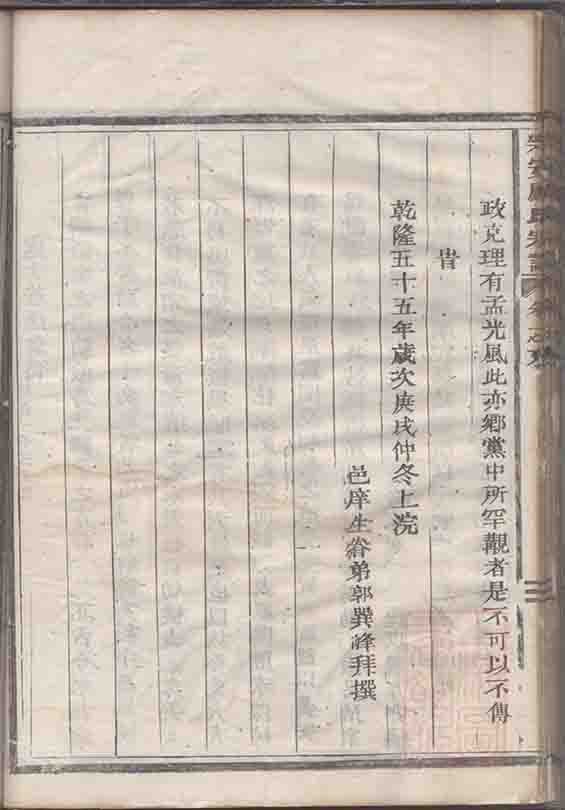 政克理有孟光風此亦鄉黨中所罕覯者是不可以不傳
旹
乾隆五十五年歲次庚戌仲冬上浣
邑庠生眷弟郭巽峰拜撰